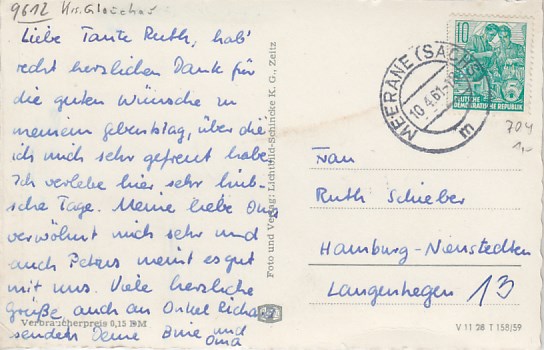 9612 Krs. Glauchau
Liebe Tante Ruth, hab'
recht herzlichen Dank für
die guten Wünsche zu
meinem Geburtstag, über die
ich mich sehr gefreut habe.
Ich verlebe hier sehr hüb-
sche Tage. Meine liebe Omi
verwöhnt mich sehr und
auch Peters meint es gut
mit uns. Viele herzliche
Grüße auch an Onkel Richa
senden Deine und
Oma
Verbraucherpreis 0,15 DM
Foto und Verlag: Lichtbild-Schincke K. G., Zeitz
MEERANE (SACHS)
10.4.61
m
10
DEUTSCHE
DEMOKRATISCHE REPUBLIK
704
1,-
Frau
Ruth Schieber
Hamburg-Nienstedten
Langenhegen 13
V 11 28 T 158/59